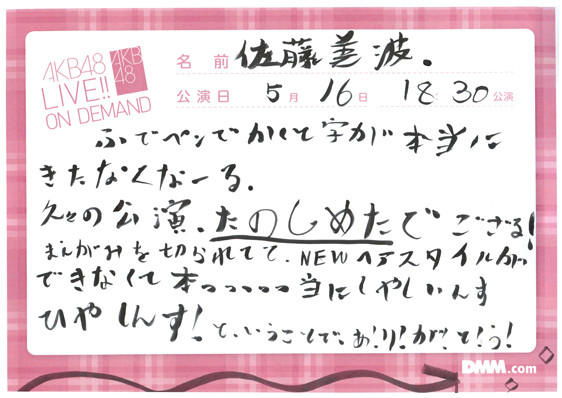 AKB48
LIVE!!
ON DEMAND
AKB
48
名前 佐藤美波.
公演日 5月16日 18:30公演
ふでペンでかくと字が本当に
きたなくなーる.
久々の公演、たのしめたでござる!
まえがみを切られてて、NEWヘアスタイルが
できなくて本っっっっっ当に
ひやしんす!
と、いうことで、あ!り!が!と!う!
DMM.com